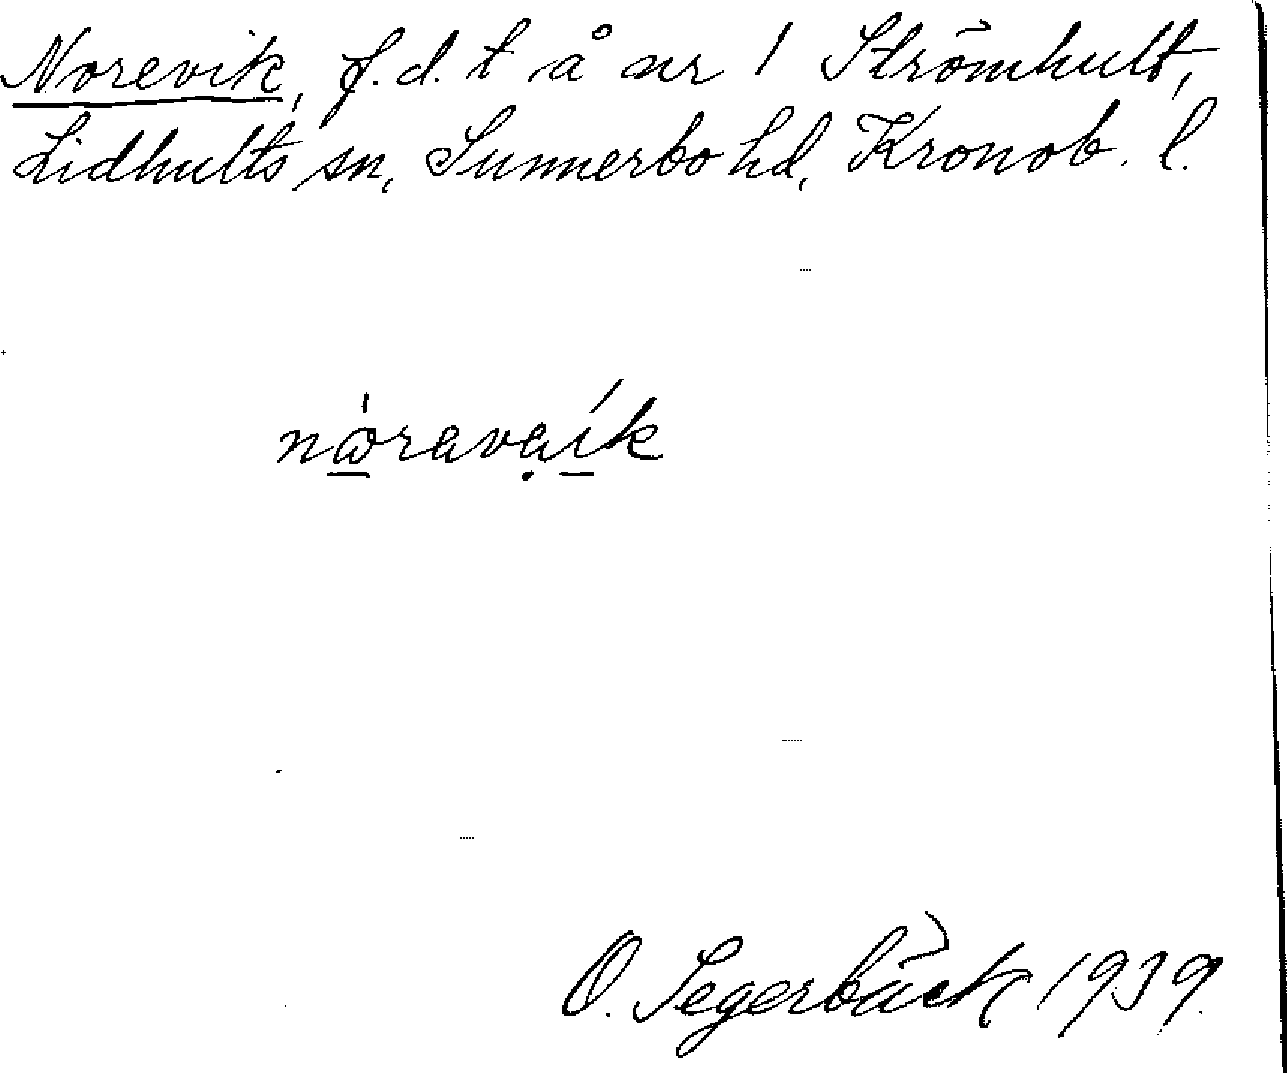 Norevik, f.d. t å nr 1 Strömhult,
Lidhults sn, Sunnerbo hd, Kronob. l.
O. Segerbäck 1939.